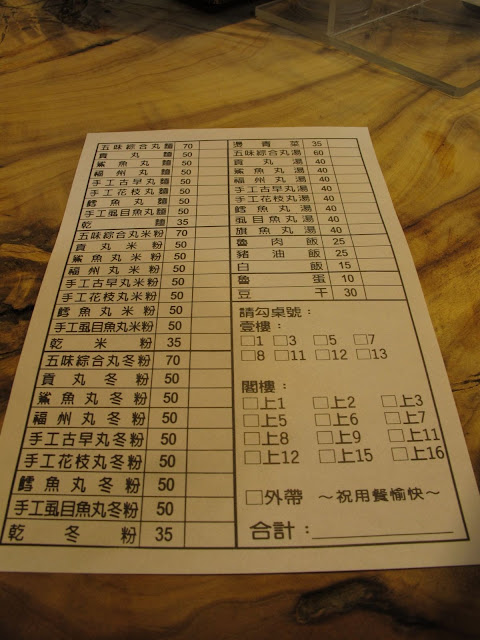 五味綜合丸麵 70
貢丸麵 50
鯊魚丸麵 50
福州丸麵 50
手工古早丸麵 50
手工花枝丸麵 50
鱈魚丸麵 50
手工虱目魚丸麵 50
乾麵 35
五味綜合丸米粉 70
貢丸米粉 50
鯊魚丸米粉 50
福州丸米粉 50
手工古早丸米粉 50
手工花枝丸米粉 50
鱈魚丸米粉 50
手工虱目魚丸米粉 50
乾米粉 35
五味綜合丸冬粉 70
貢丸冬粉 50
鯊魚丸冬粉 50
福州丸冬粉 50
手工古早丸冬粉 50
手工花枝丸冬粉 50
鱈魚丸冬粉 50
手工虱目魚丸冬粉 50
乾冬粉 35
燙青菜 35
五味綜合丸湯 60
貢丸湯 40
鯊魚丸湯 40
福州丸湯 40
手工古早丸湯 40
手工花枝丸湯 40
鱈魚丸湯 40
虱目魚丸湯 40
旗魚丸湯 40
魯肉飯 25
豬油飯 25
白飯 15
魯蛋 10
豆干 30
請勾桌號：
壹樓：
□1 □3 □5 □7
□8 □11 □12 □13
閣樓：
□上1 □上2 □上3
□上5 □上6 □上7
□上8 □上9 □上11
□上12 □上15 □上16
□外帶 ～祝用餐愉快～
合計：